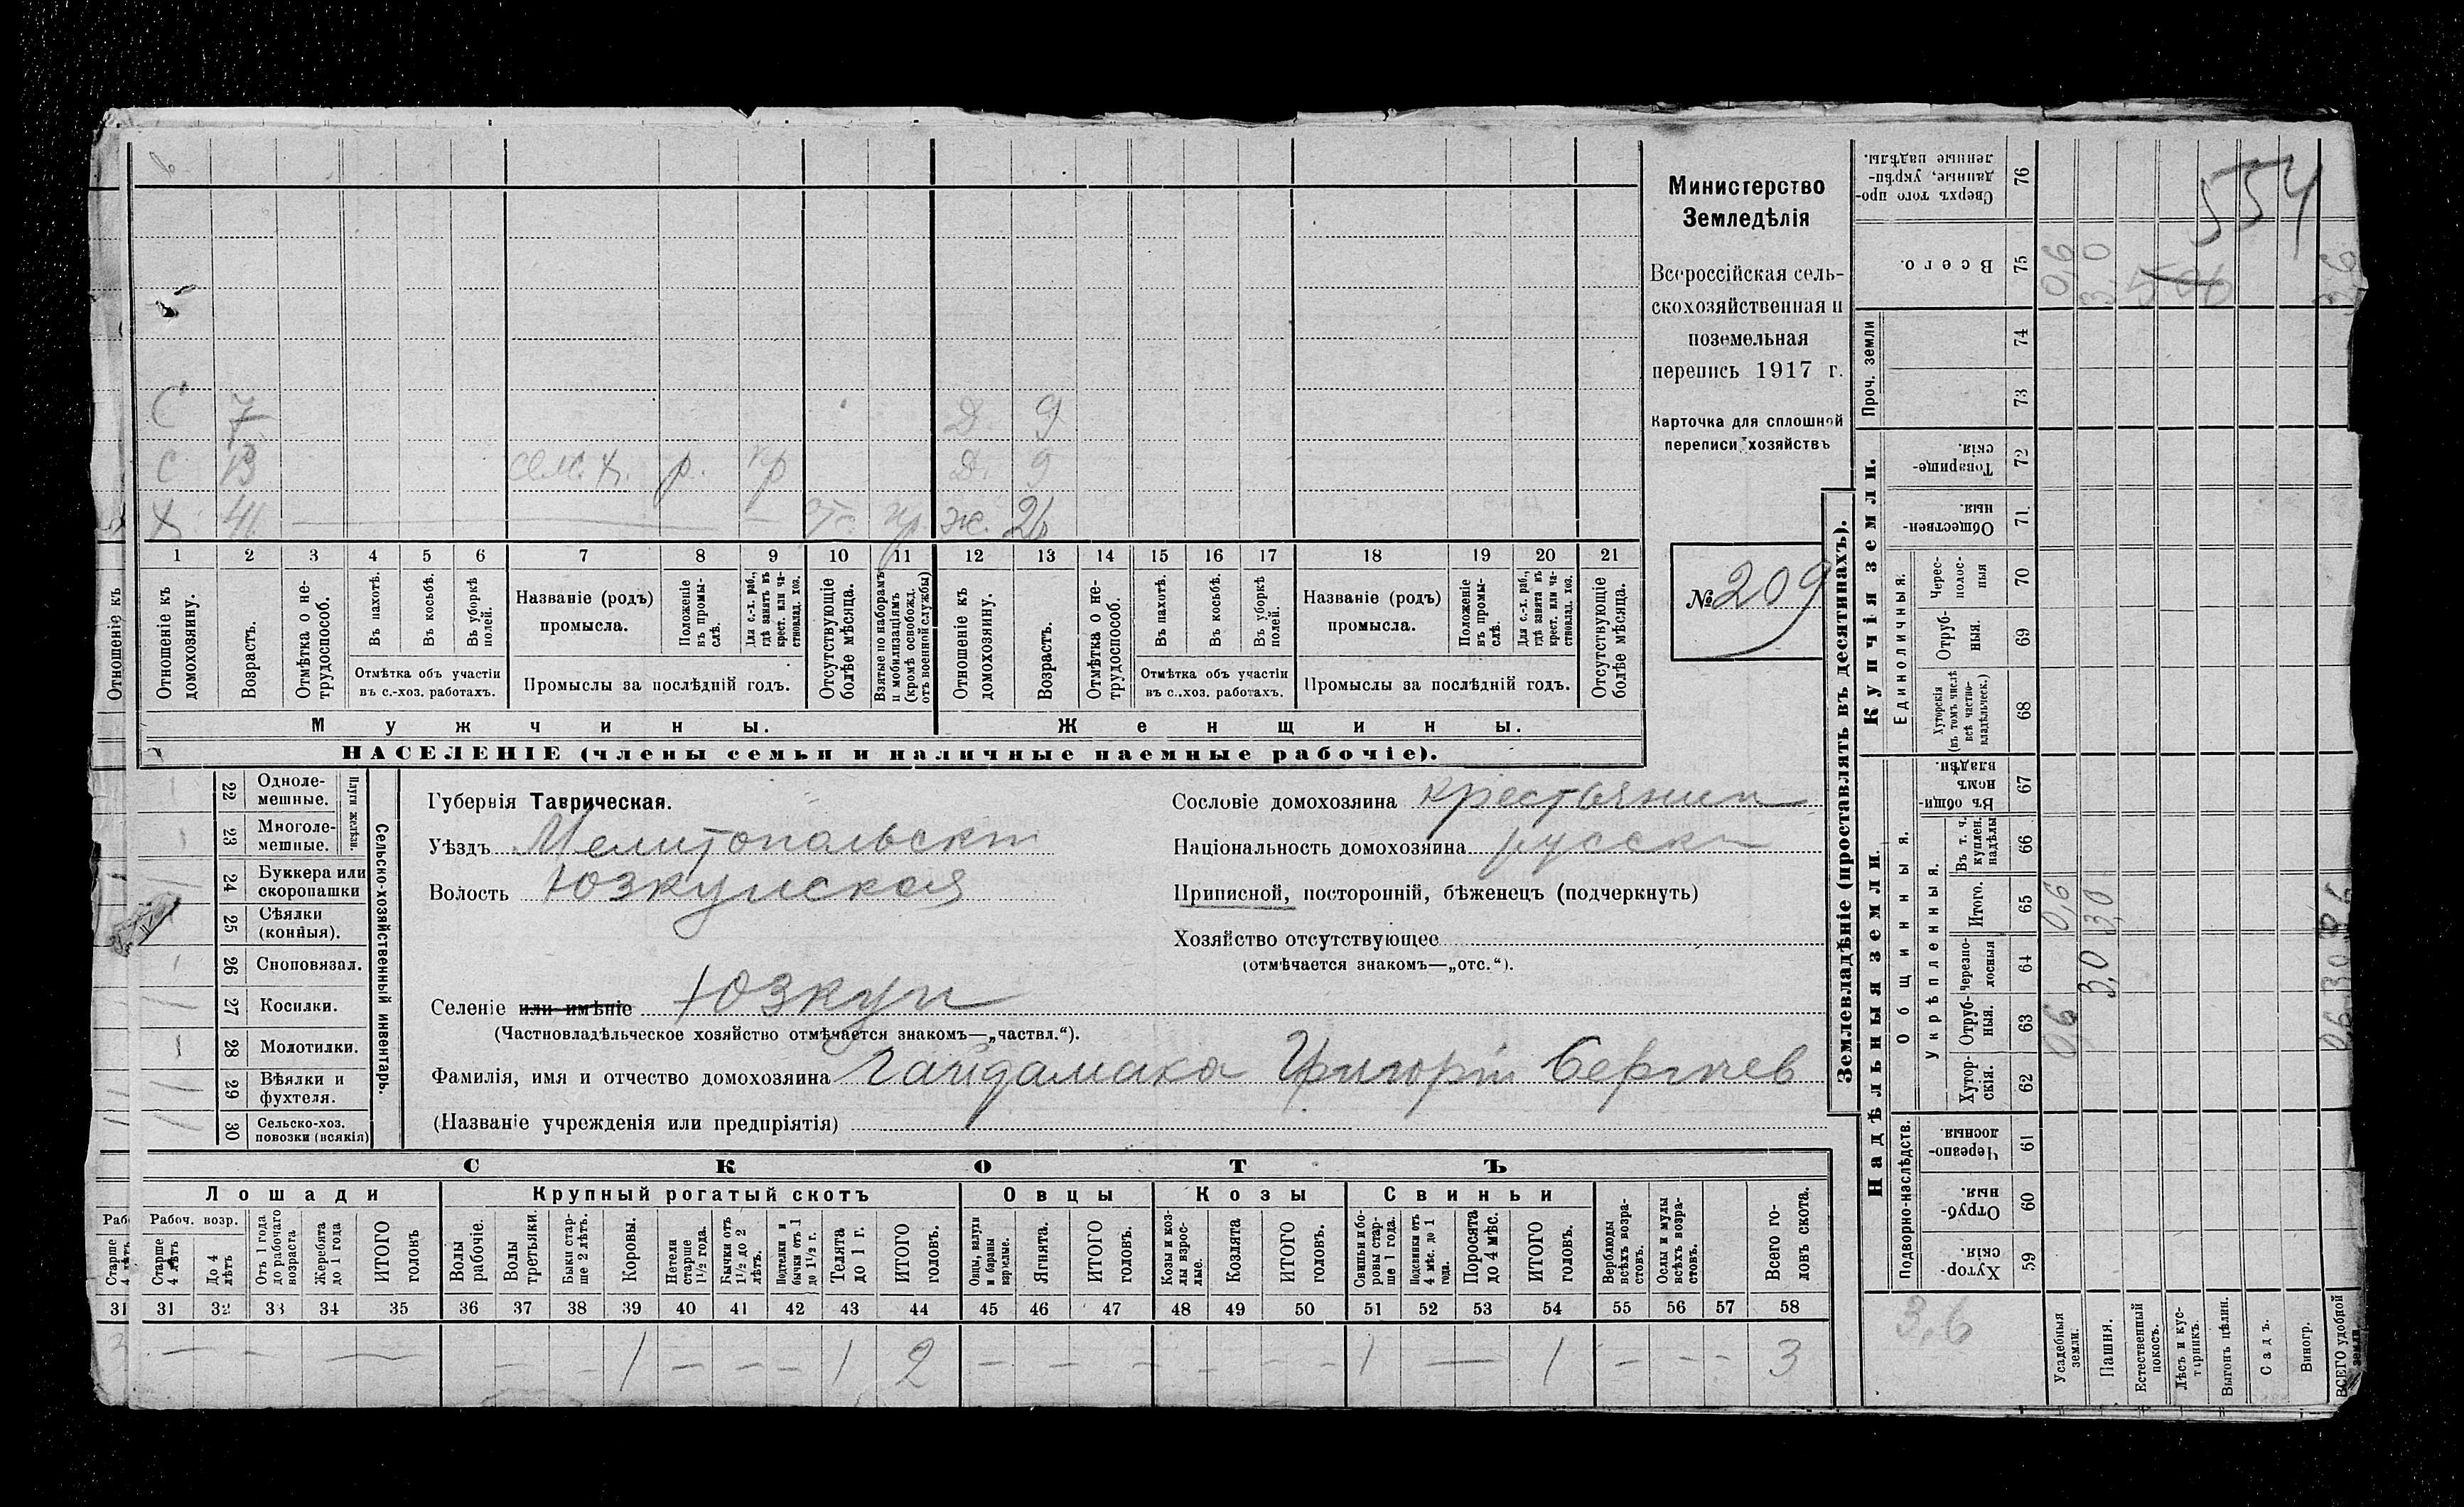 Министерство
Земледѣлія
Всероссійская сель-
скохозяйственная и
поземельная
перепись 1917 г.
Карточка для сплошной
переписи хозяйствъ
№ 209
554
С 7 Д. 9
С 13 р. кр Д. 9
Х 41 ж. 26
1 2 3 4 5 6 7 8 9 10 11 12 13 14 15 16 17 18 19 20 21
Отношеніе къ
Отношеніе къ домохозяину.
Возрастъ.
Отмѣтка о не-трудоспособ.
Въ пахотѣ.
Въ косьбѣ.
Въ уборкѣ полей.
Отмѣтка объ участіи
въ с.-хоз. работахъ.
Названіе (родъ)
промысла.
Положеніе въ промы-слѣ.
Для с.-х. раб., гдѣ занятъ въ крест. или ча-стновлад. хоз.
Промыслы за послѣдній годъ.
Отсутствующіе болѣе мѣсяца.
Взятые по наборамъ и мобилизаціямъ (кромѣ освобожд. отъ военной службы)
Отношеніе къ домохозяину.
Возрастъ.
Отмѣтка о не-трудоспособ.
Въ пахотѣ.
Въ косьбѣ.
Въ уборкѣ полей.
Отмѣтка объ участіи
въ с.-хоз. работахъ.
Названіе (родъ)
промысла.
Положеніе въ промы-слѣ.
Для с.-х. раб., гдѣ занята въ крест. или ча-стновлад. хоз.
Промыслы за послѣдній годъ.
Отсутствующіе болѣе мѣсяца.
Мужчины. Женщины.
НАСЕЛЕНІЕ (члены семьи и наличные наемные рабочіе).
Сельско-хозяйственный инвентарь.
Плуги желѣзн.
22 Одноле-мешные.
23 Многоле-мешные.
24 Буккера или скоропашки
25 Сѣялки (конныя).
26 Сноповязал.
27 Косилки.
28 Молотилки.
29 Вѣялки и фухтеля.
30 Сельско-хоз. повозки (всякія)
Губернія Таврическая.
Уѣздъ Мелитопольскій
Волость Юзкуйская
Селеніе или имѣніе Юзкуи
(Частновладѣльческое хозяйство отмѣчается знакомъ—„частвл.“).
Фамилія, имя и отчество домохозяина Гайдамака Григорій Сергѣев
(Названіе учрежденія или предпріятія)
Сословіе домохозяина крестьянин
Національность домохозяина русскій
Приписной, посторонній, бѣженецъ (подчеркнуть)
Хозяйство отсутствующее
(отмѣчается знакомъ—„отс.“).
СКОТЪ
Лошади Крупный рогатый скотъ Овцы Козы Свиньи
Рабоч. возр.
Старше 4 лѣтъ
До 4 лѣтъ
Отъ 1 года до рабочаго возраста
Жеребята до 1 года
ИТОГО головъ
Волы рабочіе.
Волы третьяки.
Быки стар-ше 2 лѣтъ.
Коровы.
Нетели старше 1½ года.
Бычки отъ 1½ до 2 лѣтъ.
Подтелки и бычки отъ 1 до 1½ г.
Телята до 1 г.
ИТОГО головъ.
Овцы, валухи и бараны взрослые.
Ягнята.
ИТОГО головъ.
Козы и коз-лы взрос-лые.
Козлята
ИТОГО головъ.
Свиньи и бо-ровы стар-ше 1 года.
Подсвинки отъ 4 мѣс. до 1 года.
Поросята до 4 мѣс.
ИТОГО головъ.
Верблюды всѣхъ возра-стовъ.
Ослы и мулы всѣхъ возра-стовъ.
Всего го-ловъ скота.
31 31 32 33 34 35 36 37 38 39 40 41 42 43 44 45 46 47 48 49 50 51 52 53 54 55 56 57 58
3 — — — — — 1 — — — 1 2 — — — — — — 1 — 1 — — — 3
Землевладѣніе (проставлять въ десятинахъ).
Надѣльныя земли. Купчія земли. Проч. земли
Подворно-наслѣдств.
Общинныя.
Укрѣпленныя.
Единоличныя.
Хутор-скія. 59
Отруб-ныя. 60
Черезпо-лосныя. 61
Хутор-скія. 62
Отруб-ныя. 63
Черезпо-лосныя 64
Итого. 65
Въ т. ч. куплен. надѣлы 66
Въ общин-номъ владѣн. 67
Хуторскія (въ томъ числѣ всѣ частно-владѣльческ.) 68
Отруб-ныя. 69
Черес-полос-ныя 70
Обществен-ныя. 71
Товарище-скія. 72
73
74
Всего. 75
Сверхъ того про-данные, укрѣп-ленные надѣлы. 76
Усадебныя земли. 0,6 0,6 0,6
Пашня. 3,0 3,0 3,0
Естественный покосъ.
Лѣсъ и кус-тарникъ.
Выгонъ цѣлин.
Садъ.
Виногр.
ВСЕГО удобной земли 0,6 3,0 3,6 3,6
3,6